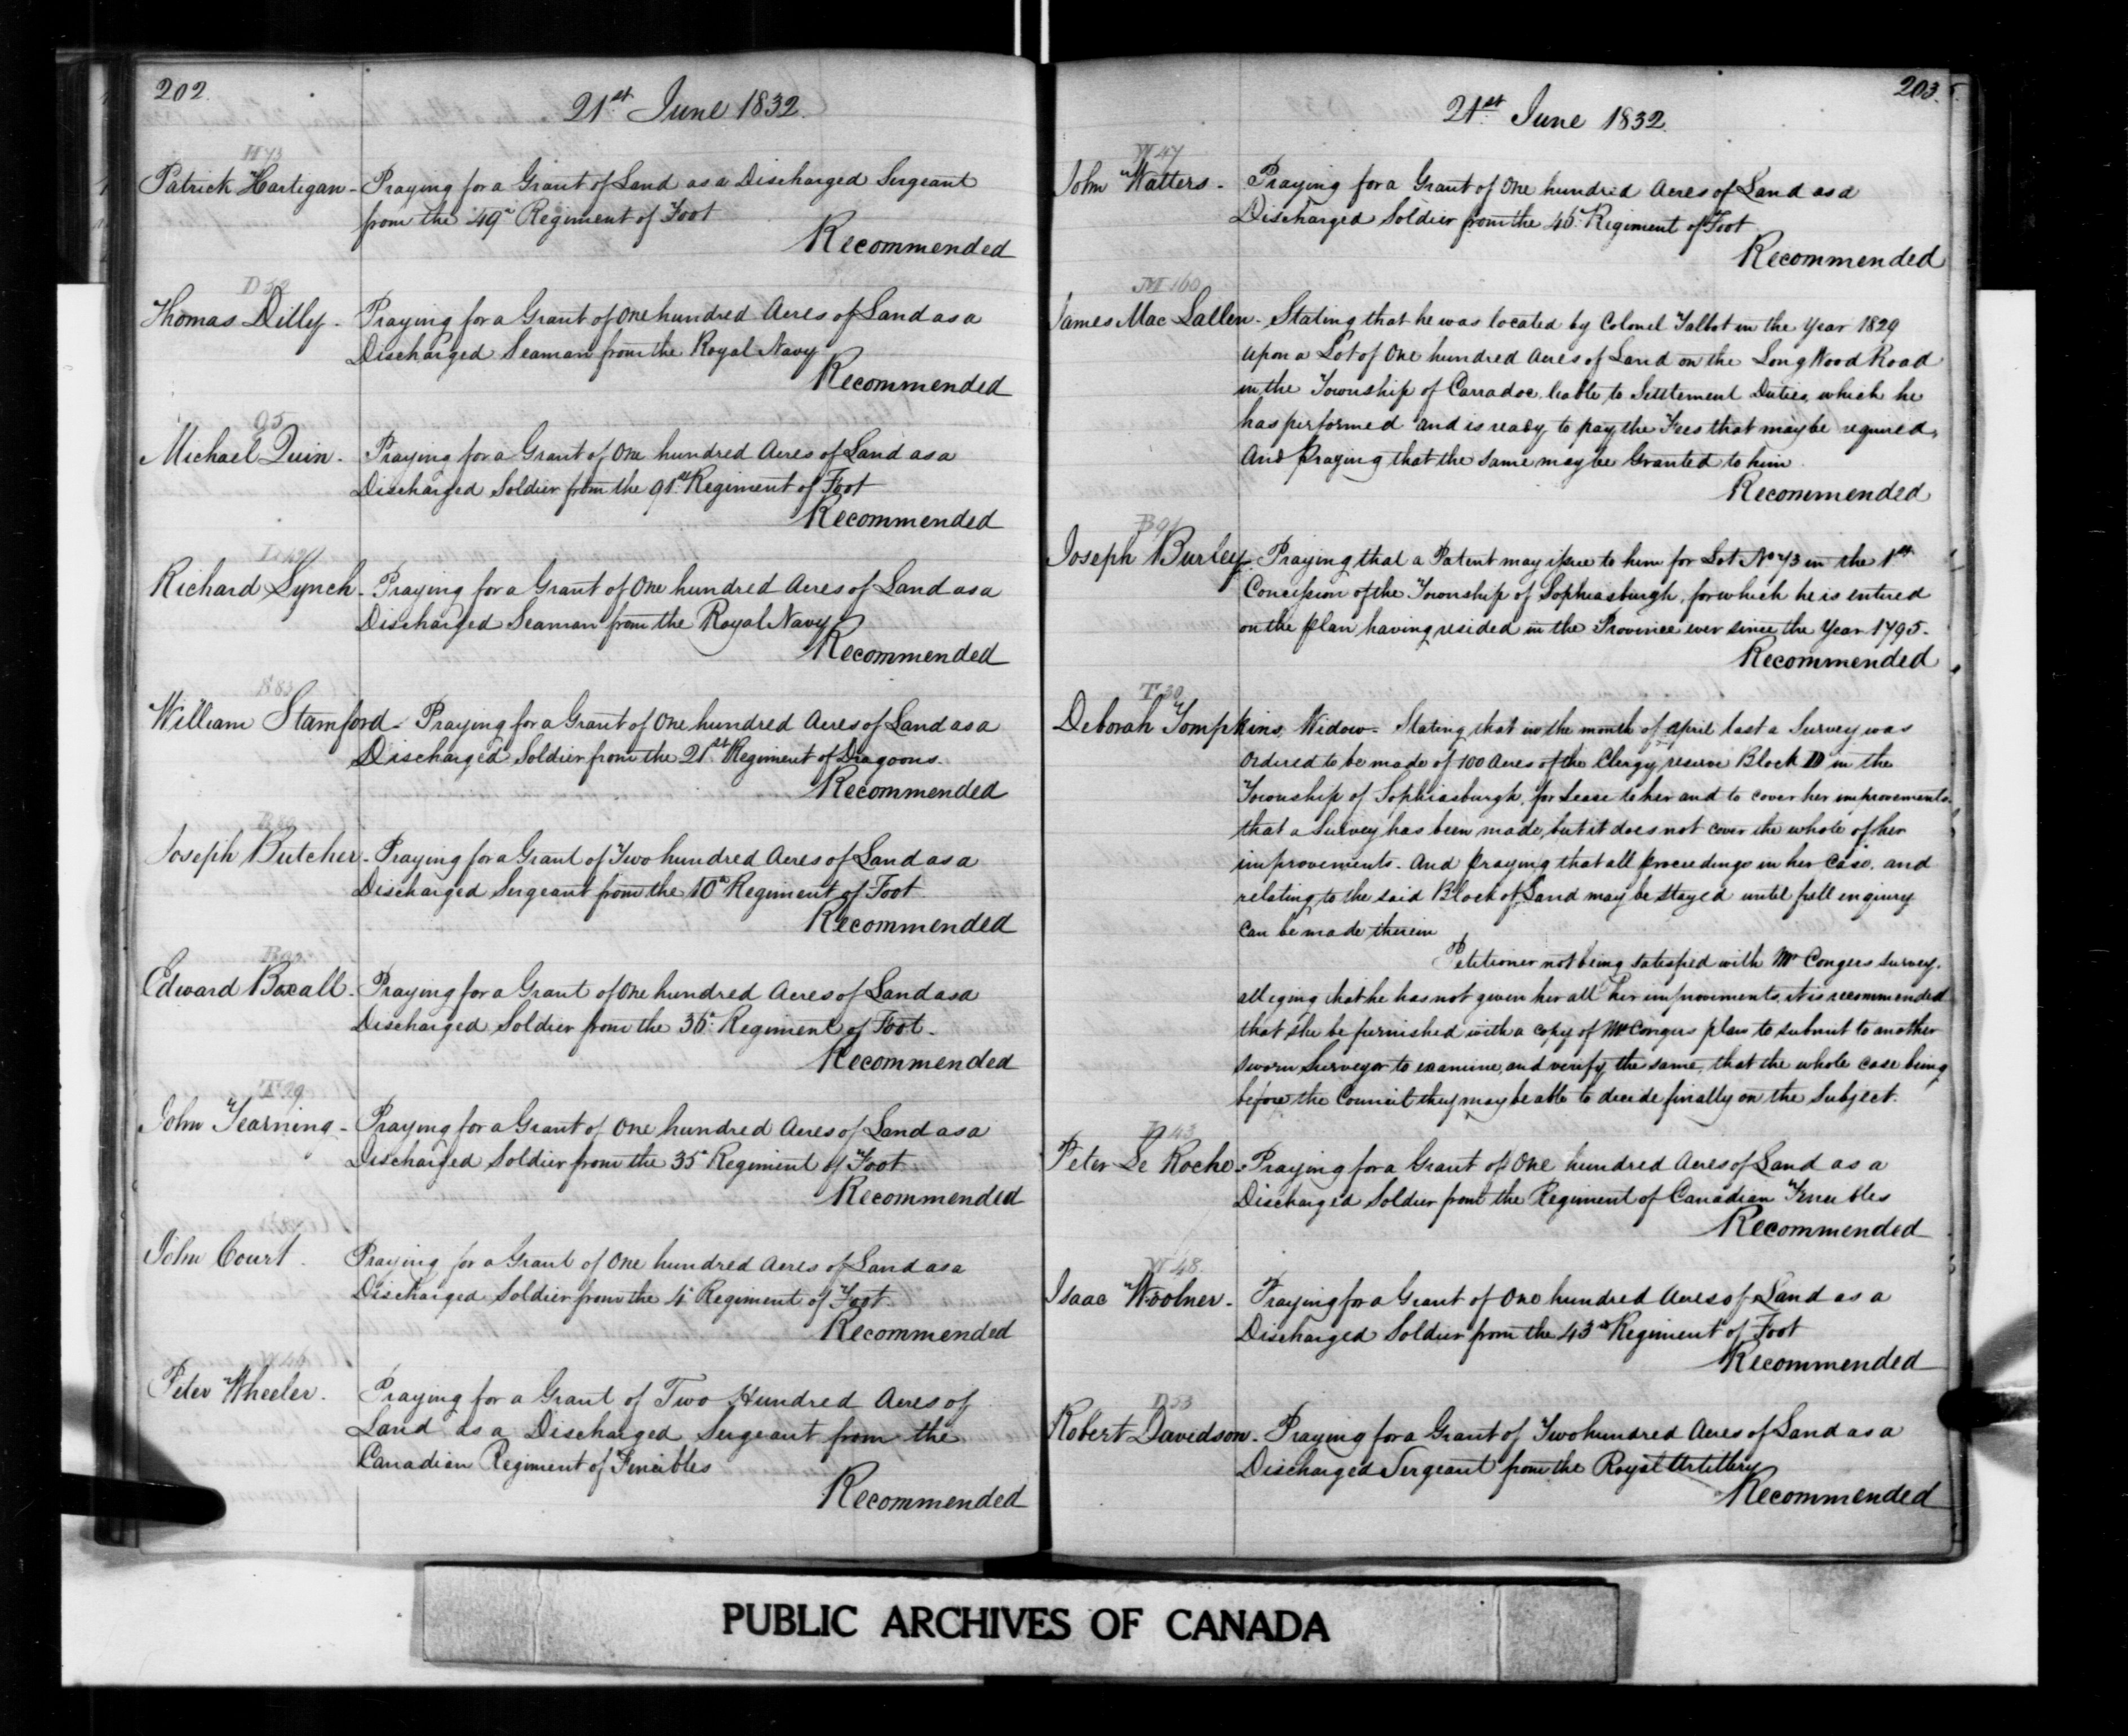 202.
21st June 1832.
H 73
Patrick Hartigan - Praying for a Grant of Land as a Discharged Sergeant
from the 49th Regiment of Foot
Recommended
D 52
Thomas Dilly - Praying for a Grant of One hundred Acres of Land as a
Discharged Seaman from the Royal Navy
Recommended
Q 5
Michael Quin - Praying for a Grant of One hundred Acres of Land as a
Discharged Soldier from the 91st Regiment of Foot
Recommended
Richard Lynch - Praying for a Grant of One hundred Acres of Land as a
Discharged Seaman from the Royal Navy
Recommended
William Stamford - Praying for a Grant of One hundred Acres of Land as a
Discharged Soldier from the 21st Regiment of Dragoons.
Recommended
Joseph Butcher - Praying for a Grant of Two hundred Acres of Land as a
Discharged Sergeant from the 10th Regiment of Foot.
Recommended
Edward Boxall - Praying for a Grant of One hundred Acres of Land as a
Discharged Soldier from the 36th Regiment of Foot.
Recommended
John Yearning - Praying for a Grant of One hundred Acres of Land as a
Discharged Soldier from the 35th Regiment of Foot
Recommended
John Court. Praying for a Grant of One hundred Acres of Land as a
Discharged Soldier from the 4th Regiment of Foot.
Recommended
W 46
Peter Wheeler. Praying for a Grant of Two Hundred Acres of
Land as a Discharged Sergeant from the
Canadian Regiment of Fencibles
Recommended
203.
21st June 1832.
W 47
John Watters - Praying for a Grant of One hundred Acres of Land as a
Discharged Soldier from the 46th Regiment of Foot
Recommended
M 160
James Mac Lallen - Stating that he was located by Colonel Talbot in the Year 1829
upon a Lot of One hundred Acres of Land on the Long Wood Road
in the Township of Carradoc liable to Settlement Duties, which he
has performed and is ready to pay the Fees that may be required,
And Praying that the same may be Granted to him.
Recommended
B 91
Joseph Burley - Praying that a Patent may issue to him for Lot No 43 in the 1st
Concession of the Township of Sophiasburgh, for which he is entered
on the plan having resided in the Province ever since the Year 1795.
Recommended
T 30
Deborah Tompkins, Widow - Stating that in the month of April last a Survey was
Ordered to be made of 100 Acres of the Clergy reserve Block D in the
Township of Sophiasburgh, for Lease to her and to cover her improvements.
that a Survey has been made, but it does not cover the whole of her
improvements. And Praying that all proceedings in her Case, and
relating to the said Block of Land may be stayed until full enquiry
can be made therein
Petitioner not being satisfied with Mr Congers survey.
alleging that he has not given her all her improvements, it is recommended
that she be furnished with a copy of Mr Congers plan to submit to another
sworn Surveyor to examine, and verify the same, that the whole case being
before the Council they may be able to decide finally on the Subject.
Peter Le Roche - Praying for a Grant of One hundred Acres of Land as a
Discharged Soldier from the Regiment of Canadian Fencibles
Recommended
W 48.
Isaac Woolner - Praying for a Grant of One hundred Acres of Land as a
Discharged Soldier from the 43rd Regiment of Foot
Recommended
D 53
Robert Davidson - Praying for a Grant of Two hundred Acres of Land as a
Discharged Sergeant from the Royal Artillery
Recommended
PUBLIC ARCHIVES OF CANADA